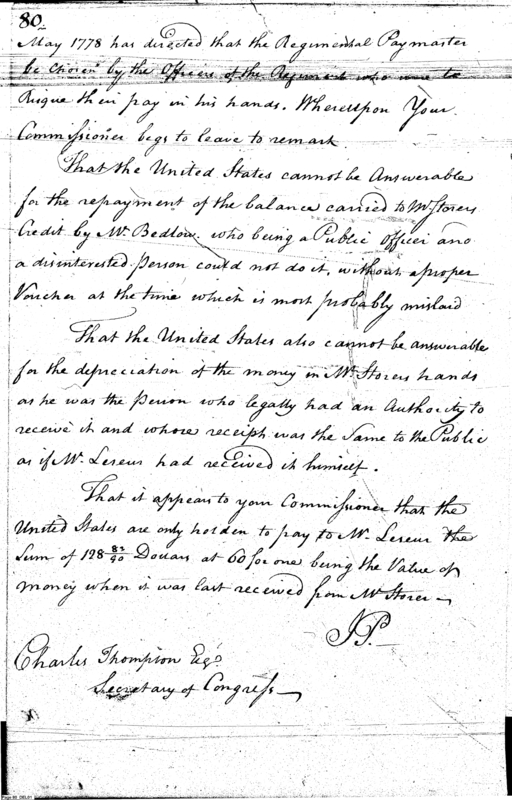 80
May 1778 has directed that the Regimental Paymaster
be chosen by the Officers of the Regiment who were to
Risque their pay in his hands. Whereupon Your
Commissioner begs to leave to remark
That the United States cannot be Answerable
for the repayment of the balance carried to Mr. Storers
Credit by Mr. Bedlow. who being a Public officer and
a disinterested person could not do it, without a proper
Voucher at the time which is most probably mislaid
That the United States also cannot be answerable
for the depreciation of the money in Mr. Storers hands
as he was the person who legally had an Authority to
receive it and whose receipt was the Same to the Public
as if Mr. Lereur had received it himself.
That it appears to your Commissioner that the
United States are only holden to pay to Mr. Lereur the
Sum of 128 82/90 Dollars at 60 for one being the Value of
money when it was last received from Mr. Storer
J.P.
Charles Thompson Esqr.
Secretary of Congress